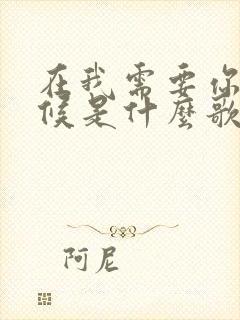 在我需要你
候是什麼歌
阿尼